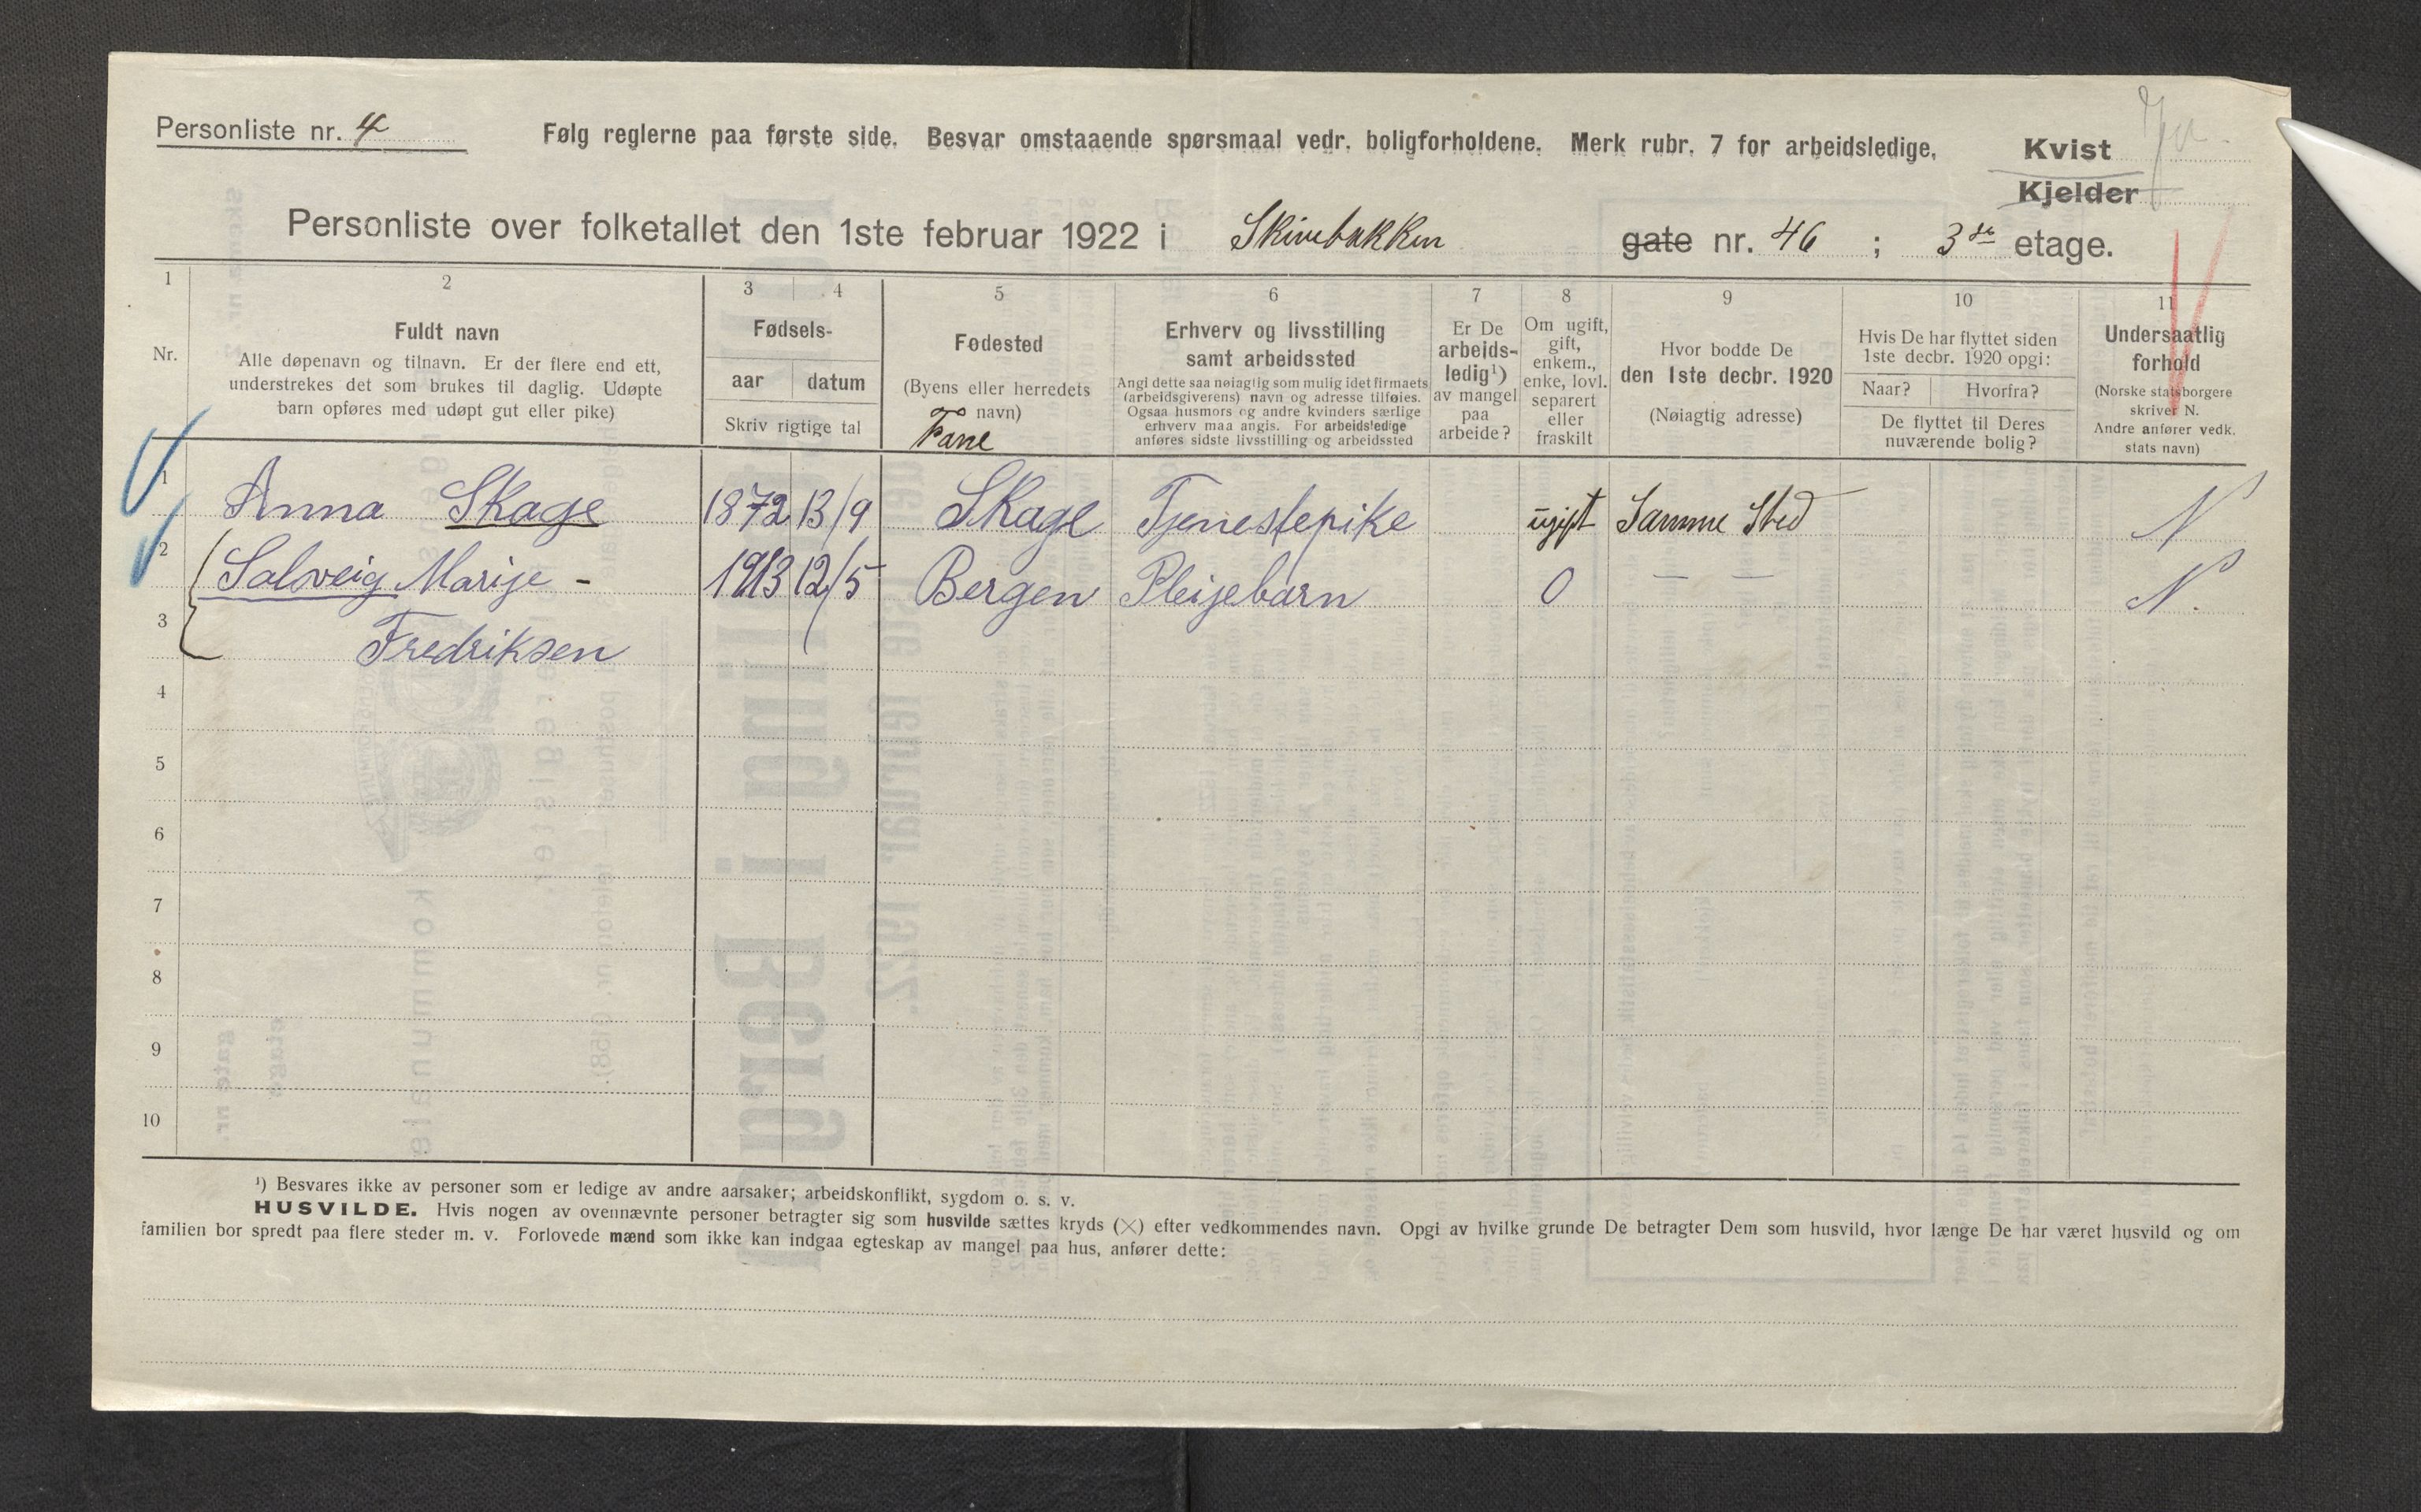 Personliste nr. 4
Følg reglerne paa første side. Besvar omstaaende spørsmaal vedr. boligforholdene. Merk rubr. 7 for arbeidsledige.
Kvist
Kjelder
Personliste over folketallet den 1ste februar 1922 i Skivebakken gate nr. 46 ; 3de etage.
1 2 3 4 5 6 7 8 9 10 11
Nr.
Fuldt navn
Alle døpenavn og tilnavn. Er der flere end ett,
understrekes det som brukes til daglig. Udøpte
barn opføres med udøpt gut eller pike)
Fødsels-
aar datum
Skriv rigtige tal
Fødested
(Byens eller herredets
navn)
Fane
Erhverv og livsstilling
samt arbeidssted
Angi dette saa nøiagtig som mulig idet firmaets
(arbeidsgiverens) navn og adresse tilføies.
Ogsaa husmors og andre kvinders særlige
erhverv maa angis. For arbeidsledige
anføres sidste livsstilling og arbeidssted
Er De
arbeids-
ledig¹)
av mangel
paa
arbeide?
Om ugift,
gift,
enkem.,
enke, lovl.
separert
eller
fraskilt
Hvor bodde De
den 1ste decbr. 1920
(Nøiagtig adresse)
Hvis De har flyttet siden
1ste decbr. 1920 opgi:
Naar? Hvorfra?
De flyttet til Deres
nuværende bolig?
Undersaatlig
forhold
(Norske statsborgere
skriver N.
Andre anfører vedk.
stats navn)
1 Anna Skage 1872 13/9 Skage Tjenestepike ugift Samme Sted N
2 Solveig Marije - 1913 12/5 Bergen Pleijebarn 0 — — N.
3 Fredriksen
4
5
6
7
8
9
10
¹) Besvares ikke av personer som er ledige av andre aarsaker; arbeidskonflikt, sygdom o. s. v.
HUSVILDE. Hvis nogen av ovennævnte personer betragter sig som husvilde sættes kryds (×) efter vedkommendes navn. Opgi av hvilke grunde De betragter Dem som husvild, hvor længe De har været husvild og om
familien bor spredt paa flere steder m. v. Forlovede mænd som ikke kan indgaa egteskap av mangel paa hus, anfører dette: